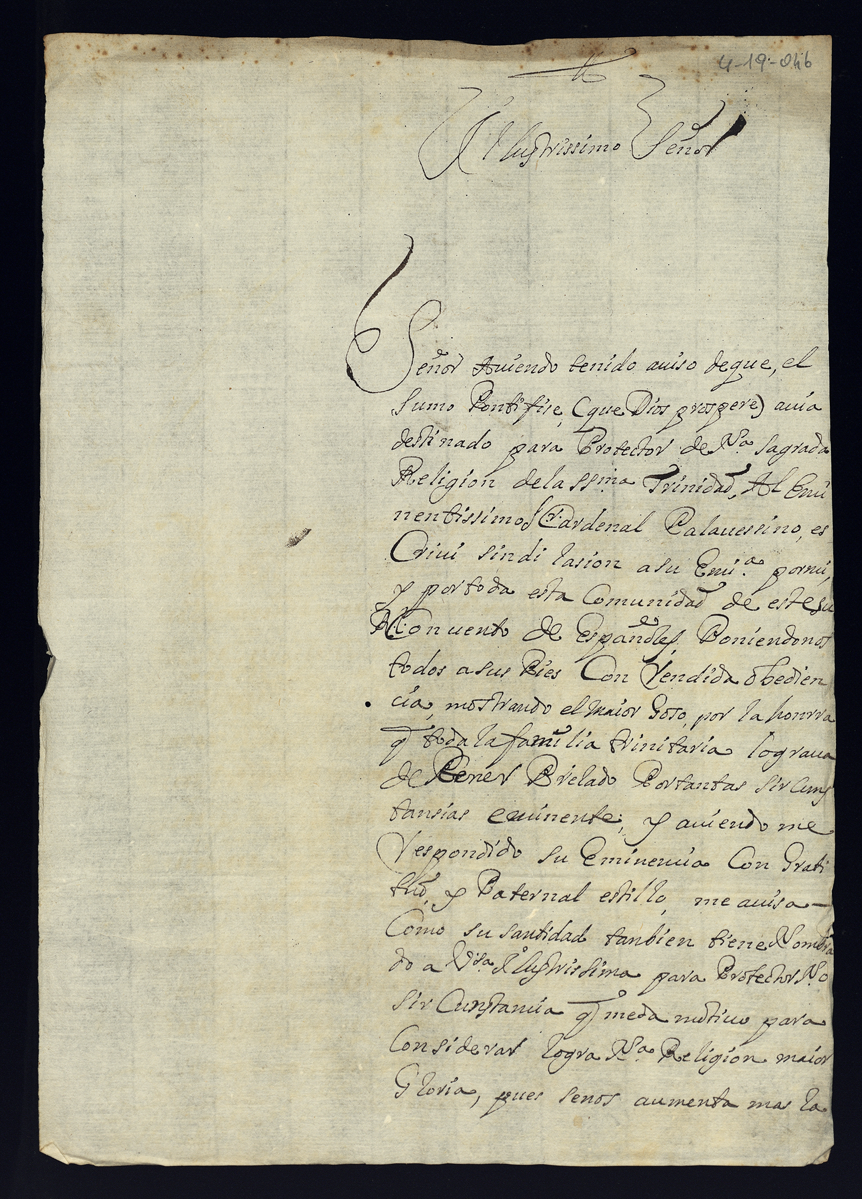 4-19-046
Illustrissimo Señor
Señor Auiendo tenido auiso deque, el
Sumo Pontifise, (que Dios prospere) auia
destinado para Protector de Nra. sagrada
Religion delassma Trinidad, Al Emi
nentissimo Sr. Cardenal Palauessino, es
Criui sindilasion asu Emi.a pormi,
y portoda esta Comunidad de este su
Rl Conuento de Españoles, Poniendonos
todos asus Pies Con Rendida obedien
cia, mostrando el maior Goso, por la honrra
q todala familia trinitaria lograua
de Tener Prelado Portantas sircuns
tansias eminente; y auiendo me
Respondido su Eminencia Con Grati
tud, y Paternal estillo, me auisa
Como su santidad tanbien tiene Nombra
do a Vsa. Illustrissima para Protector No
sircunstancia q meda motiuo para
Considerar logra Nra. Religion maior
Gloria, pues senos aumenta mas la